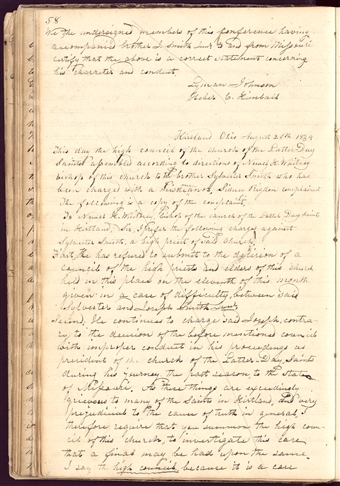 58
We the undersigned members of this conference having
accompanied brother J. Smith Junr to and from Missouri
certify that the above is a correct statement concerning
his character and conduct,
Lyman Johnson
Heber C. Kimball
Kirtland Ohio August 28th 1834
This day the high council of the church of the Latter Day
Saints assembled according to directions of Newel K. Whitney
bishop of this church to try brother Sylvester Smith who had
been charged with a misdemeanor, Sidney Rigdon complainant
The following is a copy of the complaint.
To Newel K. Whitney, bishop of the church of the Latter Day Saints
in Kirtland, Sir, I prefer the following charges against
Sylvester Smith, a high priest of said church,
First, he has refused to submit to the decision of a
council of the high priests and elders of this church
held in this place on the eleventh of this month
given in a case of difficulty between said
Sylvester and Joseph Smith Junr
Second, He continues to charge said Joseph, contra-
ry, to the decision of the before mentioned council
with improper conduct in his proceedings as
president of the church of the Latter Day Saints
during his journey the past season to the State
of Missouri. As these things are exceedingly
grievous to many of the Saints in Kirtland, and very
prejudicial to the cause of truth in general, I
therefore require that you summon the high coun-
cil of this church, to investigate this case,
that a final may be had upon the same.
I say to high council, because it is a case